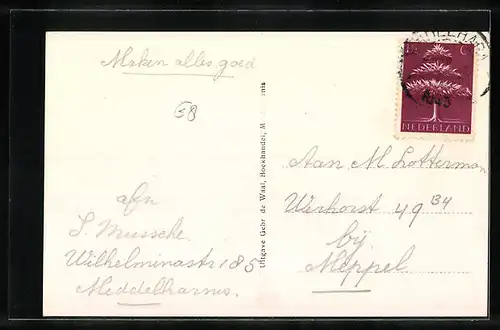 Maken alles goed
68
afn
S. Mussche
Wilhelminastr 185
Meddelharnis.
Uitgave Gebr de Waal, Boekhandel, M nis
1½ C
1943
NEDERLAND
Aan M Lotterman
Werhorst 49 34
bij
Meppel